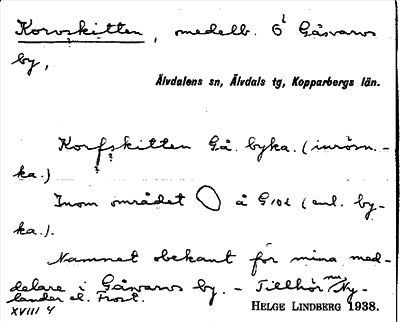 Korvskitten, medelb. 6 i Gåsvarvs
by,
Älvdalens sn, Älvdals tg, Kopparbergs län.
Korfskitten Gå. byka. (inrösn.-
ka.)
Inom området å G 10 i (enl. by-
ka.).
Namnet obekant för mina med-
delare i Gåsvarvs by. – Tillhör nu Ny-
lander el. Frost.
XVIII 4
HELGE LINDBERG 1938.